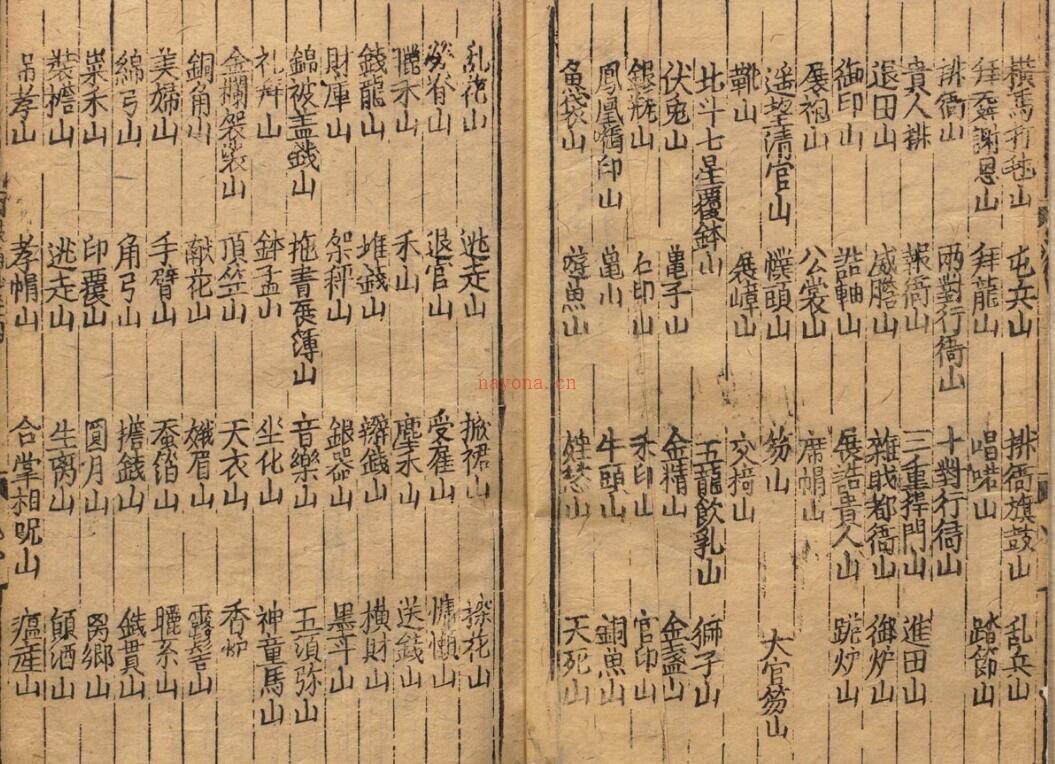 橫馬打毬山 屯兵山 排衙旗鼓山 乱兵山
拜舞謝恩山 拜龍山 唱喏山 踏節山
排衙山 兩對行衙山 十對行衙山
貴人排 報衙山 三重捍門山 進田山
退田山 威膽山 雜职都衙山 御炉山
御印山 誥軸山 展誥貴人山 跪炉山
展袍山 公裳山 席帽山
遥望清官山 幞頭山 笏山 大官笏山
靴山 展幛山 交椅山
北斗七星覆鉢山 五龍飲乳山 獅子山
伏兔山 亀子山 金精山 金盞山
銀瓶山 石印山 禾印山 官印山
鳳凰啣印山 亀山 牛頭山 銅魚山
魚袋山 遊魚山 愁山 夭死山
乱花山 逃走山 掀裙山 探花山
脊山 退官山 受雇山 慵懶山
禾山 禾山 塵禾山 送錢山
錢龍山 堆錢山 錢山 橫財山
財庫山 架秤山 銀器山 墨斗山
錦被盖錢山 拖書展簿山 音樂山 五須弥山
礼拜山 鉢盂山 坐化山 神童馬山
金襴袈裟山 頂笠山 天衣山 香炉
銅角山 献花山 娥眉山 雲髻山
美婦山 手臂山 蚕箔山 曬糸山
綿弓山 角弓山 擔錢山 錢貫山
菜禾山 印覆山 圓月山 男鄉山
裝檐山 逃走山 生离山 顛酒山
吊孝山 孝帽山 合掌相呪山 瘟㾏山
nayona.cn